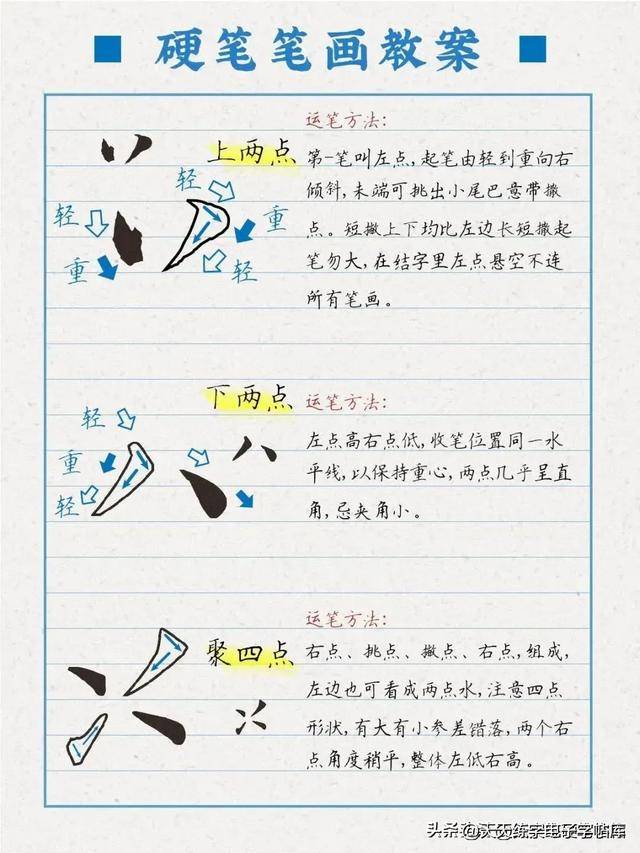 硬笔笔画教案
上两点
轻
轻
重
重
轻
运笔方法:
第一笔叫左点,起笔由轻到重向右
倾斜,末端可挑出小尾巴意带撇
点。短撇上下均比左边长短撇起
笔勿大,在结字里左点悬空不连
所有笔画。
下两点
轻
重
轻
运笔方法:
左点高右点低,收笔位置同一水
平线,以保持重心,两点几乎呈直
角,忌夹角小。
聚四点
运笔方法:
右点、挑点、撇点、右点,组成,
左边也可看成两点水,注意四点
形状,有大有小参差错落,两个右
点角度稍平,整体左低右高。
头条@天天练字电子字帖库